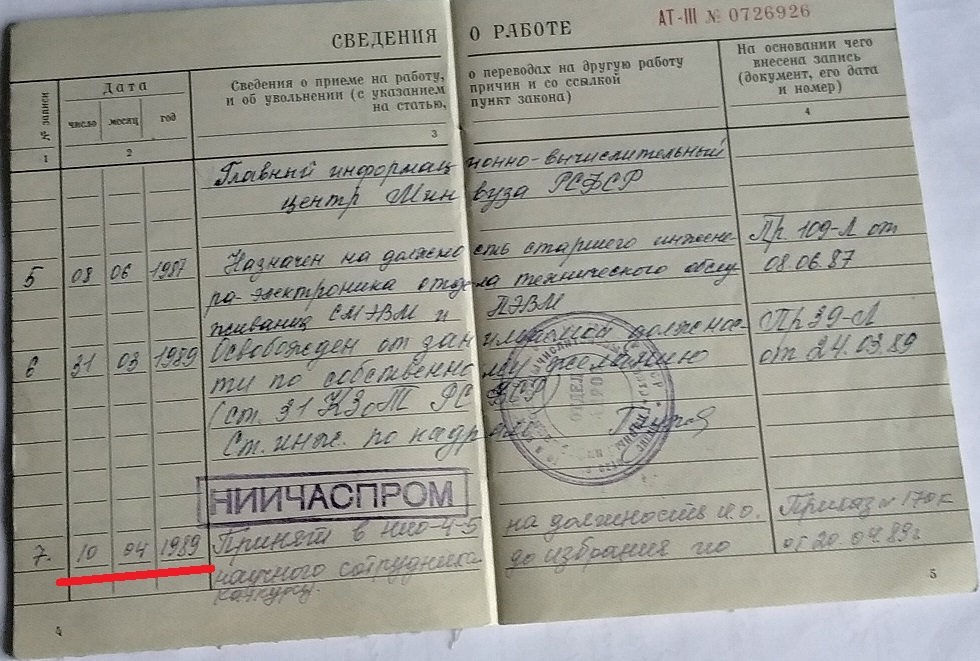 СВЕДЕНИЯ О РАБОТЕ
АТ-III № 0726926
№ записи
Дата
число месяц год
Сведения о приеме на работу, о переводах на другую работу
и об увольнении (с указанием причин и со ссылкой
на статью, пункт закона)
На основании чего
внесена запись
(документ, его дата
и номер)
1 2 3 4
Главный информационно-вычислительный
центр Минвуза РСФСР
5 08 06 1987 Назначен на должность старшего инжене- Пр. 109-Л от
ра-электроника отдела технического обслу- 08.06.87
живания СМЭВМ и ПЭВМ
6 31 03 1989 Освобожден от занимаемой должнос- Пр 39-Л
ти по собственному желанию от 24.03.89
(ст. 31 КЗоТ РСФСР
Ст. инж. по кадрам
ОТДЕЛ
НИИЧАСПРОМ
7. 10 04 1989 Принят в НИО-4-5 на должность и.о. Приказ № 170к
научного сотрудника до избрания по от 20.04.89г
конкурсу.
4
5